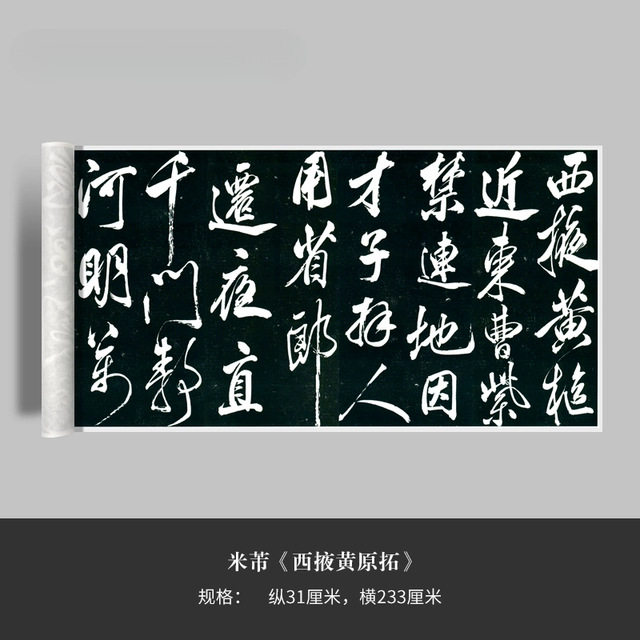 西掖黄樞
近東曹紫
禁連地因
才子拜人
用省郎
遷夜直
千門靜
河明萬
米芾《西掖黄原拓》
规格： 纵31厘米，横233厘米